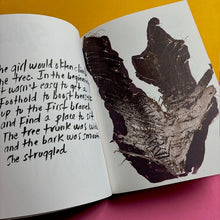 he girl would often clim
the tree. In the beginning
it wasn't easy to get a
Foothold to boost herself
up to the first branch
and find a place to sit.
The tree trunk was wide
and the bark was smooth.
She struggled.